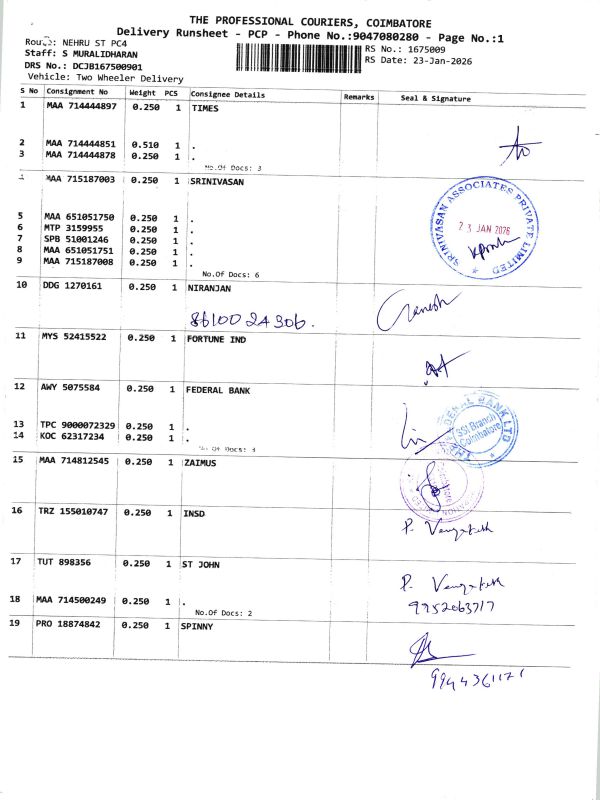 THE PROFESSIONAL COURIERS, COIMBATORE
Delivery Runsheet - PCP - Phone No.:9047080280 - Page No.:1
Route: NEHRU ST PC4
RS No.: 1675009
Staff: S MURALIDHARAN
RS Date: 23-Jan-2026
DRS No.: DCJB167500901
Vehicle: Two Wheeler Delivery
S No Consignment No Weight PCS Consignee Details Remarks Seal & Signature
1 MAA 714444897 0.250 1 TIMES
2 MAA 714444851 0.510 1 .
3 MAA 714444878 0.250 1 .
No.Of Docs: 3
4 MAA 715187003 0.250 1 SRINIVASAN
SRINIVASAN ASSOCIATES PRIVATE LIMITED
23 JAN 2026
5 MAA 651051750 0.250 1 .
6 MTP 3159955 0.250 1 .
7 SPB 51001246 0.250 1 .
8 MAA 651051751 0.250 1 .
9 MAA 715187008 0.250 1 .
No.Of Docs: 6
10 DDG 1270161 0.250 1 NIRANJAN
8610024306.
Ganesh
11 MYS 52415522 0.250 1 FORTUNE IND
12 AWY 5075584 0.250 1 FEDERAL BANK
THE FEDERAL BANK LTD
SSI Branch
Coimbatore
13 TPC 9000072329 0.250 1 .
14 KOC 62317234 0.250 1 .
No.Of Docs: 3
15 MAA 714812545 0.250 1 ZAIMUS
16 TRZ 155010747 0.250 1 INSD
P. Venkatesh
17 TUT 898356 0.250 1 ST JOHN
P. Venkatesh
18 MAA 714500249 0.250 1 .
9952063717
No.Of Docs: 2
19 PRO 18874842 0.250 1 SPINNY